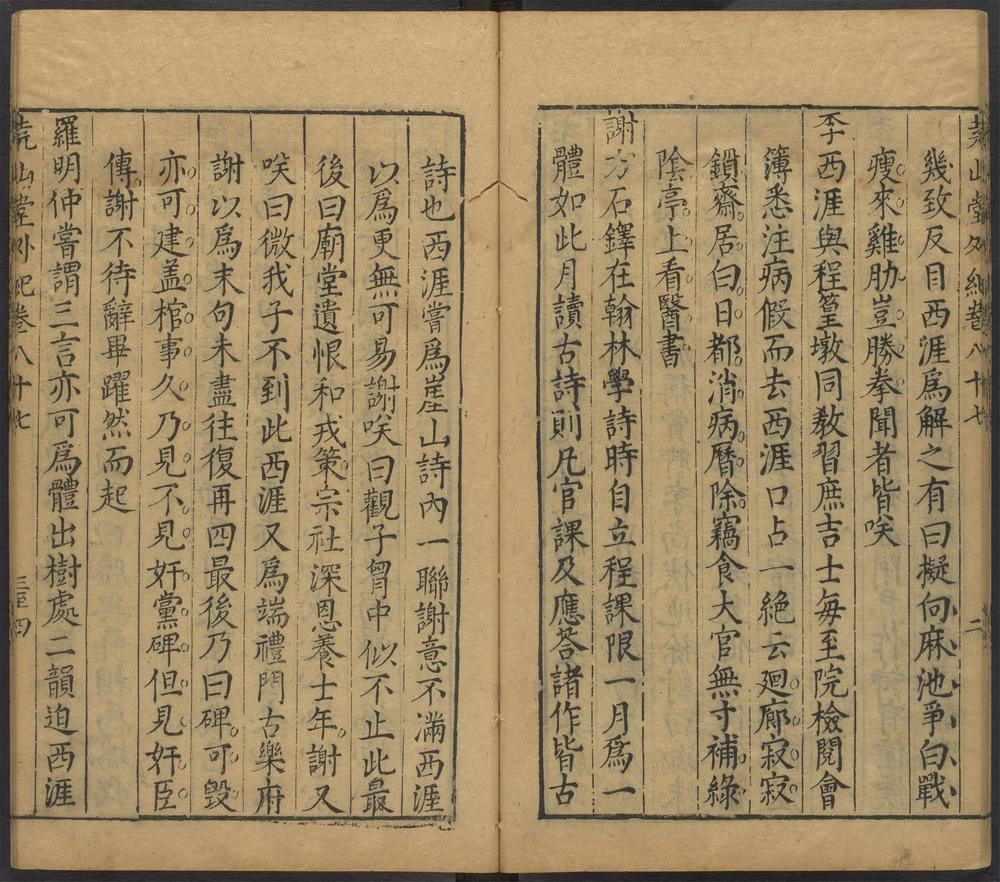 堯山堂外紀卷八十七 二
幾致反目西涯爲解之有曰擬向麻池爭白戰
瘦來雞肋豈勝拳聞者皆咲
李西涯與程篁墩同教習庶吉士每至院檢閱會
簿悉注病假而去西涯口占一絶云廻廊寂寂
鎖齋居白日都消病曆除竊食大官無寸補綠
陰亭上看醫書
謝方石鐸在翰林學詩時自立程課限一月爲一
體如此月讀古詩則凡官課及應荅諸作皆古
詩也西涯嘗爲崖山詩內一聯謝意不滿西涯
以爲更無可易謝咲曰觀子胷中似不止此最
後曰廟堂遺恨和戎策宗社深恩養士年謝又
咲曰微我子不到此西涯又爲端禮門古樂府
謝以爲末句未盡往復再四最後乃曰碑可毀
亦可建盖棺事久乃見不見奸黨碑但見奸臣
傳謝不待辭畢躍然而起
羅明仲嘗謂三言亦可爲體出樹處二韻迫西涯
堯山堂外紀卷八十七 三至四